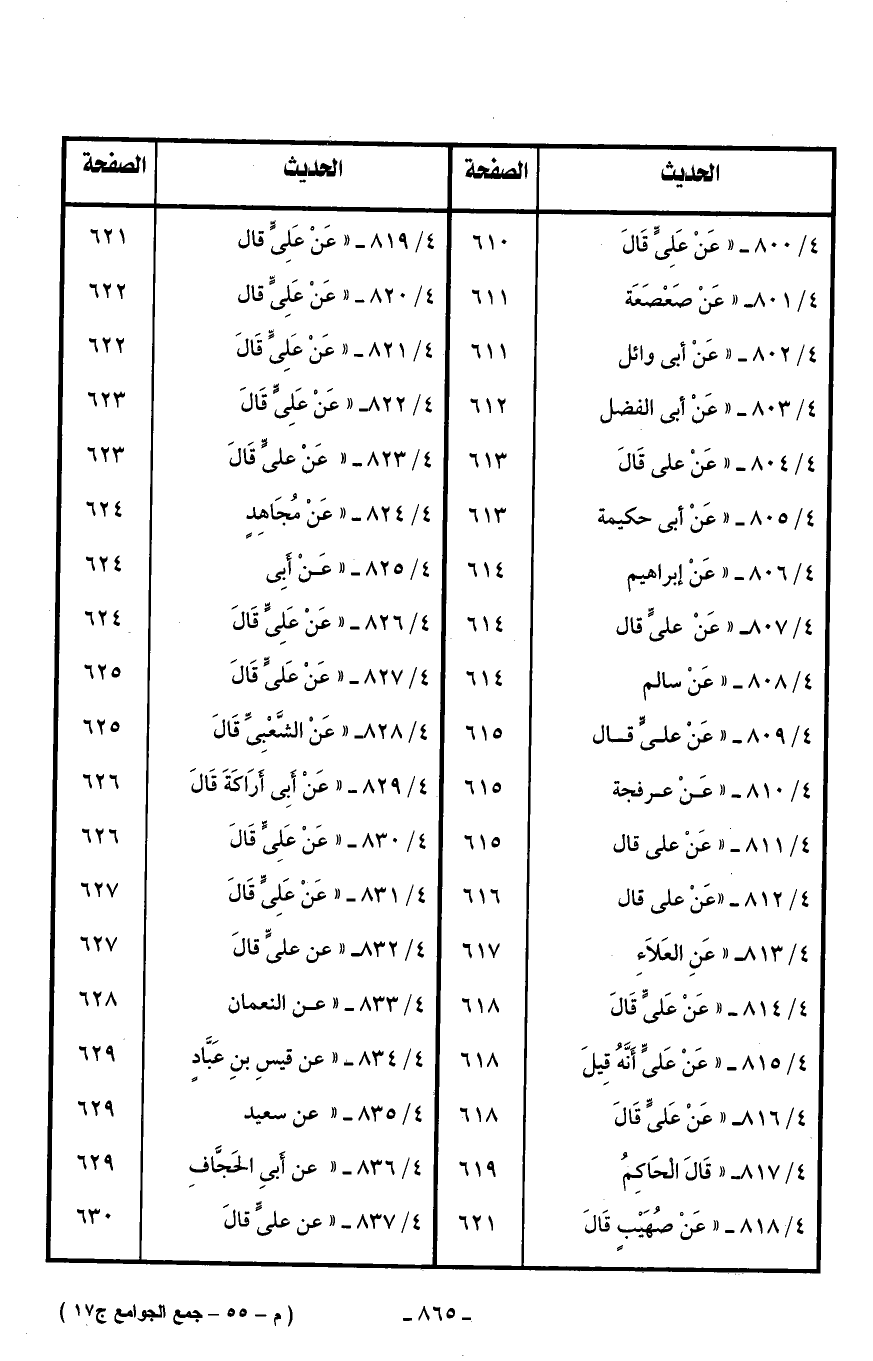 الحديث الصفحة الحديث الصفحة
٤/ ٨٠٠ ـ « عَنْ عَلِىٍّ قَالَ ٦١٠ ٤/ ٨١٩ ـ « عَنْ عَلِىٍّ قال ٦٢١
٤/ ٨٠١ـ « عَنْ صَعْصَعَة ٦١١ ٤/ ٨٢٠ ـ « عَنْ عَلِىٍّ قال ٦٢٢
٤/ ٨٠٢ ـ « عَنْ أبى وائل ٦١١ ٤/ ٨٢١ ـ « عَنْ عَلِىٍّ قَالَ ٦٢٢
٤/ ٨٠٣ ـ « عَنْ أبى الفضل ٦١٢ ٤/ ٨٢٢ـ « عَنْ عَلِىٍّ قَالَ ٦٢٣
٤/ ٨٠٤ ـ « عَنْ على قَالَ ٦١٣ ٤/ ٨٢٣ـ « عَنْ علىٍّ قَالَ ٦٢٣
٤/ ٨٠٥ ـ « عَنْ أبى حكيمة ٦١٣ ٤/ ٨٢٤ ـ « عَنْ مُجَاهِدٍ ٦٢٤
٤/ ٨٠٦ ـ « عَنْ إبراهيم ٦١٤ ٤/ ٨٢٥ ـ « عَـنْ أَبِى ٦٢٤
٤/ ٨٠٧ـ « عَنْ علىٍّ قال ٦١٤ ٤/ ٨٢٦ ـ « عَنْ عَلِىٍّ قَالَ ٦٢٤
٤/ ٨٠٨ ـ « عَنْ سالم ٦١٤ ٤/ ٨٢٧ ـ « عَنْ عَلِىٍّ قَالَ ٦٢٥
٤/ ٨٠٩ ـ « عَنْ علـىٍّ قـال ٦١٥ ٤/ ٨٢٨ـ « عَنْ الشَّعْبِىِّ قَالَ ٦٢٥
٤/ ٨١٠ ـ « عَـنْ عـرفجة ٦١٥ ٤/ ٨٢٩ ـ « عَنْ أَبِى أَرَاكَةَ قَالَ ٦٢٦
٤/ ٨١١ ـ « عَنْ على قال ٦١٥ ٤/ ٨٣٠ ـ « عَنْ عَلِىٍّ قَالَ ٦٢٦
٤/ ٨١٢ ـ «عَنْ على قال ٦١٦ ٤/ ٨٣١ ـ « عَنْ عَلِىٍّ قَالَ ٦٢٧
٤/ ٨١٣ـ « عَنِ العَلاَءِ ٦١٧ ٤/ ٨٣٢ـ « عن علىٍّ قالَ ٦٢٧
٤/ ٨١٤ ـ « عَنْ عَلىٍّ قَالَ ٦١٨ ٤/ ٨٣٣ ـ « عـن النعمان ٦٢٨
٤/ ٨١٥ ـ « عَنْ عَلىٍّ أَنَّهُ قِيلَ ٦١٨ ٤/ ٨٣٤ ـ « عن قيسِ بنِ عَبَّادٍ ٦٢٩
٤/ ٨١٦ـ « عَنْ عَلىٍّ قَالَ ٦١٨ ٤/ ٨٣٥ ـ « عن سعيد ٦٢٩
٤/ ٨١٧ـ « قَالَ الْحَاكِمُ ٦١٩ ٤/ ٨٣٦ ـ « عن أَبى الحَجَّافِ ٦٢٩
٤/ ٨١٨ ـ « عَنْ صُهَيْبٍ قَالَ ٦٢١ ٤/ ٨٣٧ ـ « عن علىٍّ قالَ ٦٣٠
ـ ٨٦٥ ـ ( م – ٥٥ – جمع الجوامع ج١٧ )